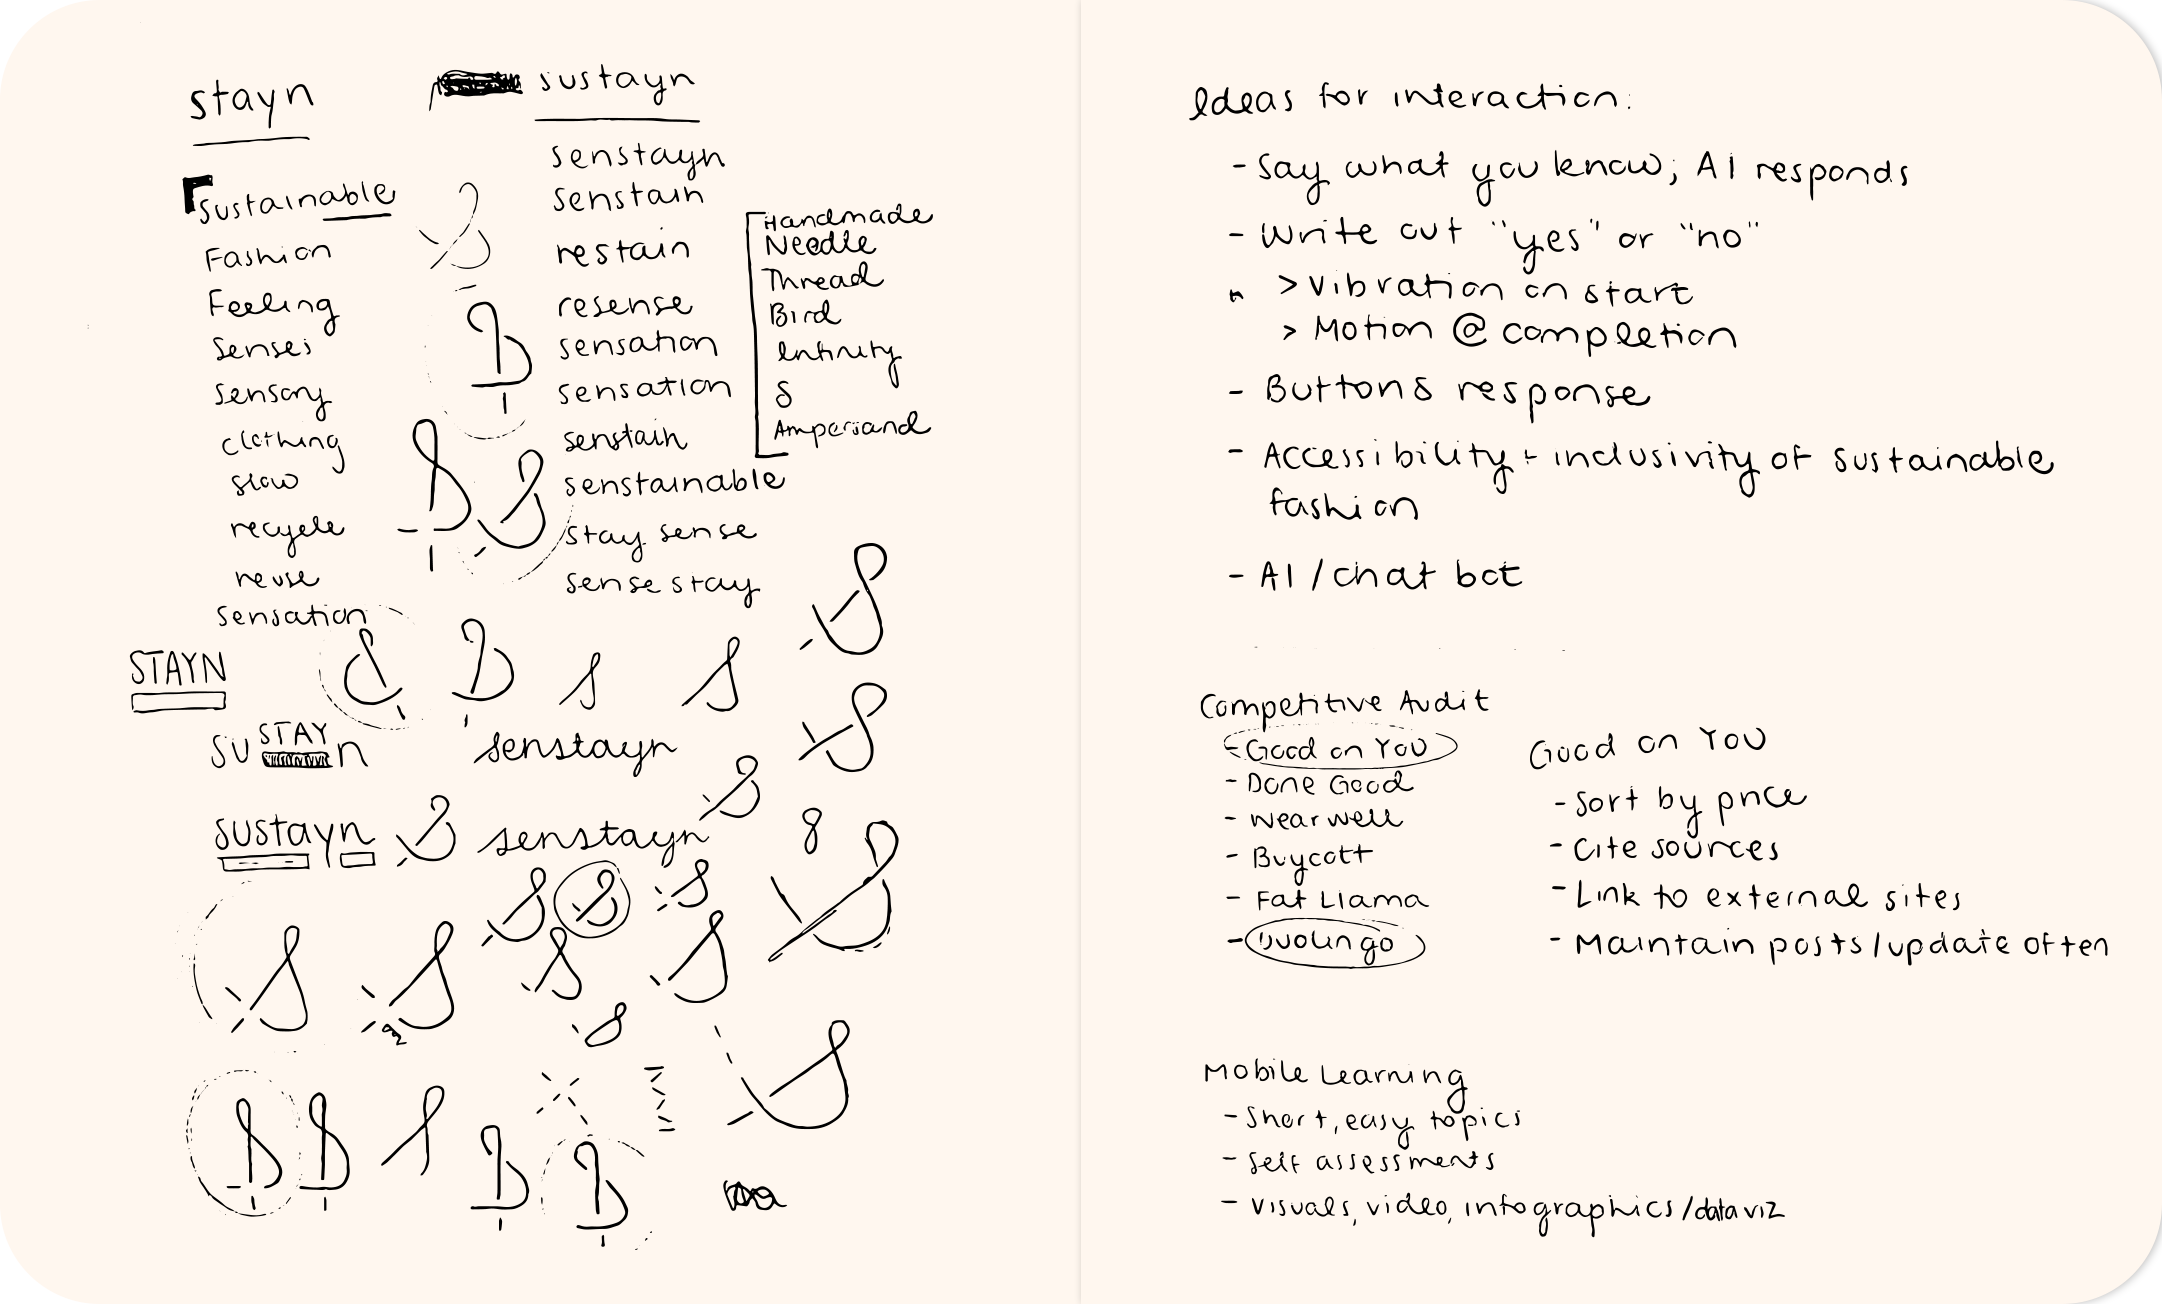 stayn
sustayn
Sustainable
Fashion
Feeling
Senses
Sensory
clothing
slow
recycle
reuse
Sensation
senstayn
senstain
restain
resense
sensation
sensation
senstain
senstainable
stay sense
sense stay
Handmade
Needle
Thread
Bird
Infinity
S
Ampersand
STAYN
SU STAY n
senstayn
sustayn
senstayn
8
Ideas for interaction:
- Say what you know; AI responds
- Write out "yes" or "no"
> Vibration on start
> Motion @ completion
- Buttons response
- Accessibility + inclusivity of sustainable
fashion
- AI / chat bot
Competitive Audit
- Good on You
- Done Good
- Wearwell
- Buycott
- Fat Llama
- Duolingo
Good on You
- Sort by price
- Cite sources
- Link to external sites
- Maintain posts/update often
Mobile Learning
- Short, easy topics
- Self assessments
- Visuals, video, infographics/data viz